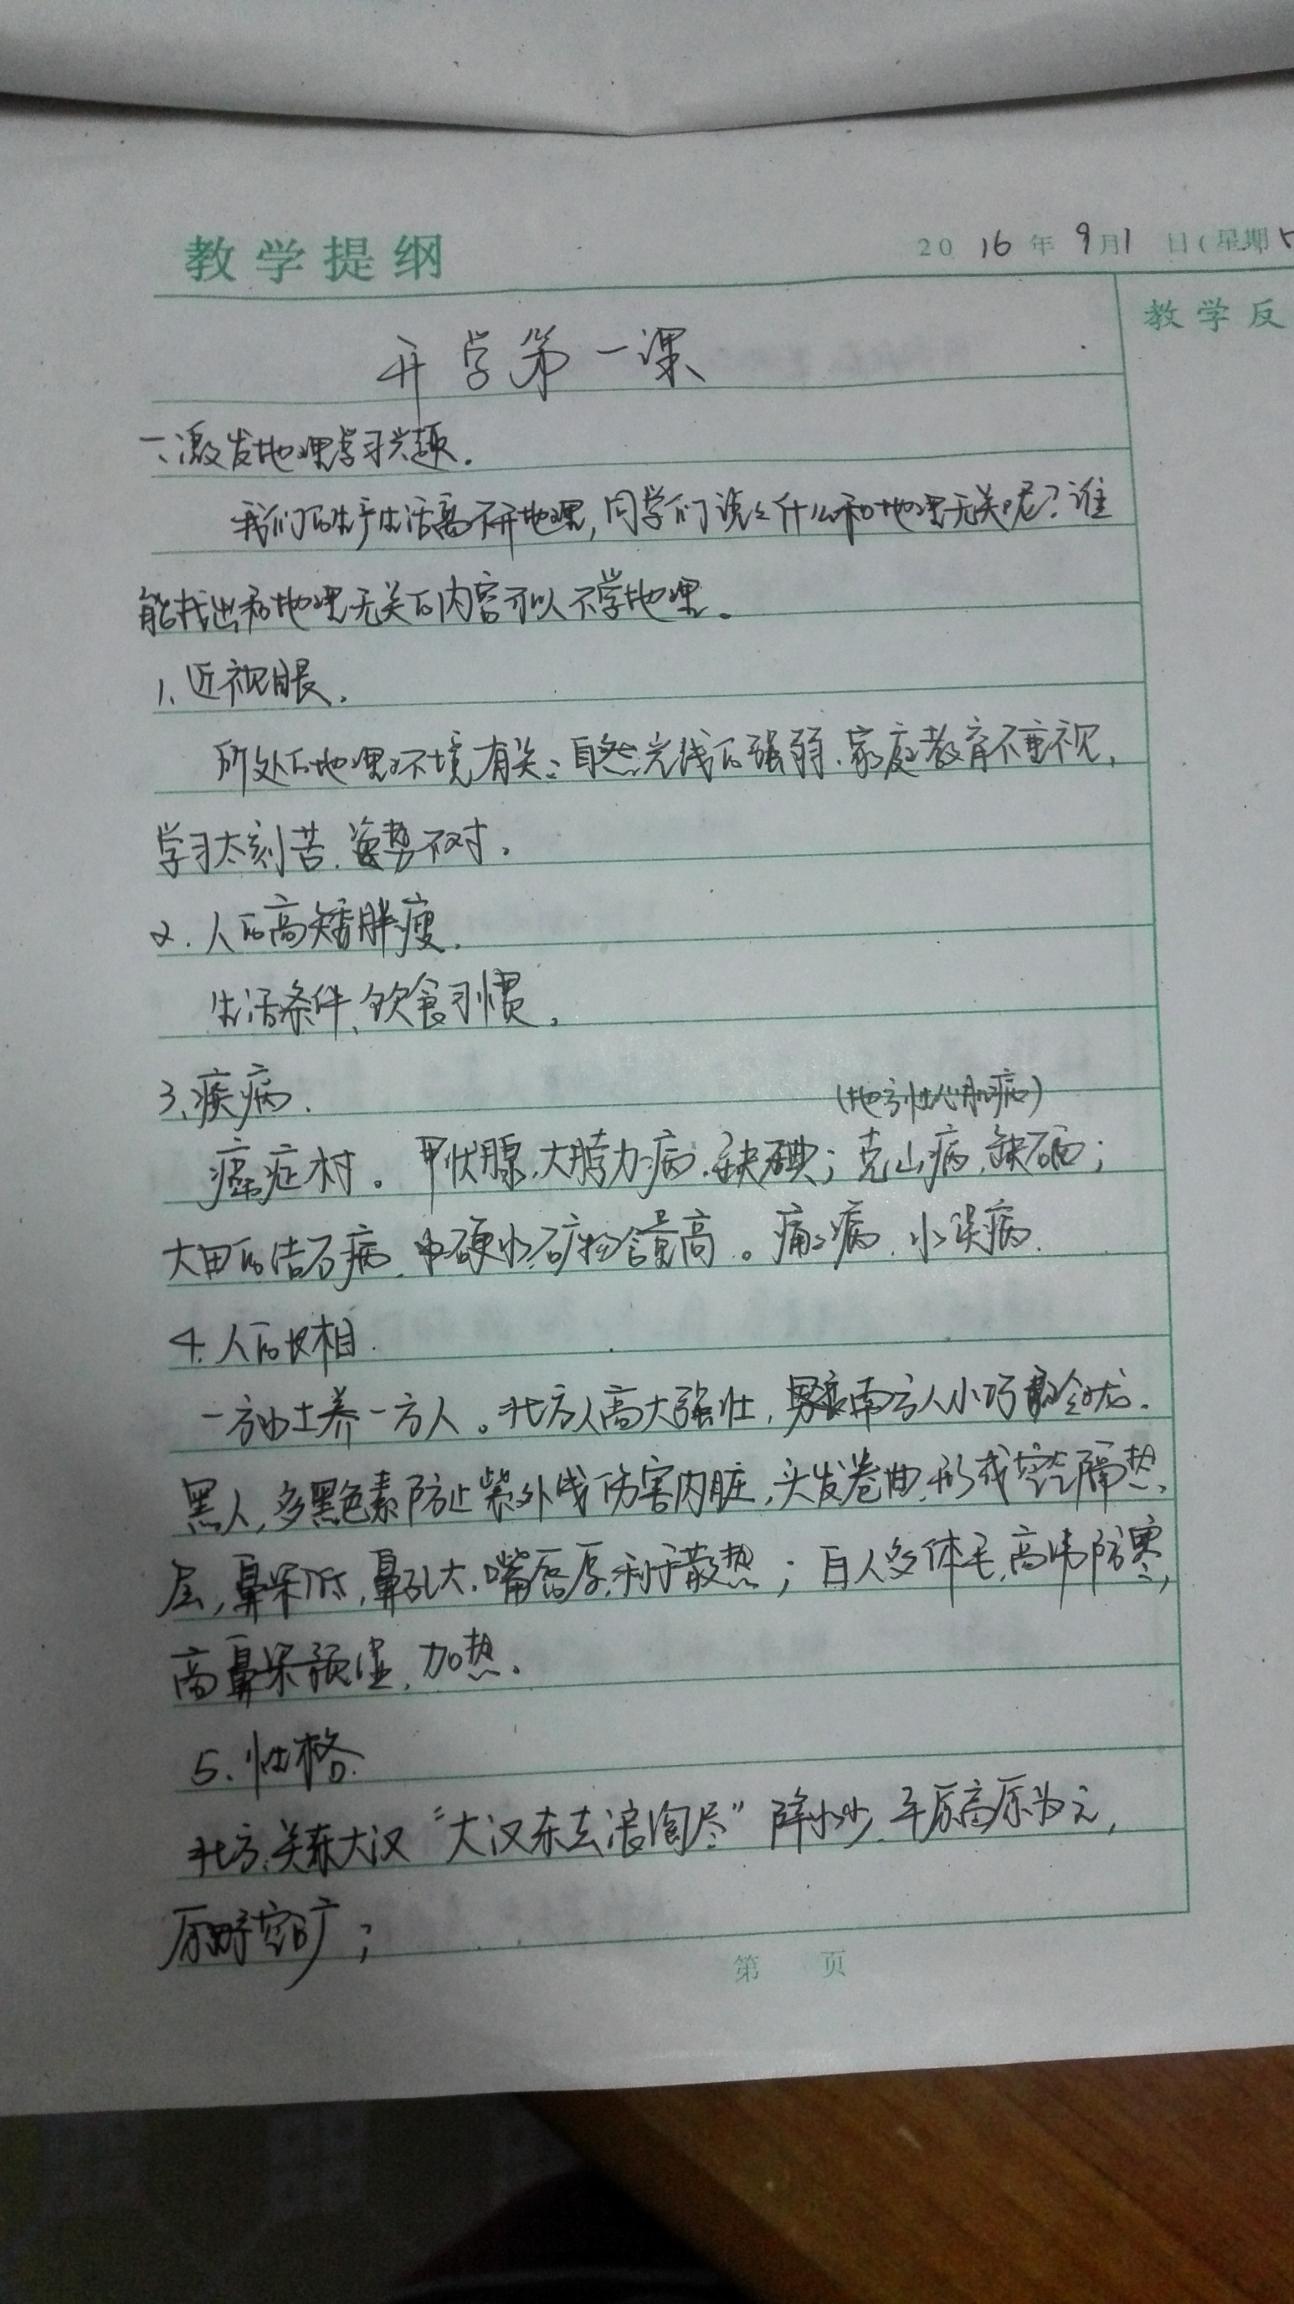 教学提纲
2016年9月1日(星期
教学反
开学第一课
一、激发地理学习兴趣.
我们的生产生活离不开地理,同学们说说什么和地理无关呢?谁
能找出和地理无关的内容可以不学地理。
1、近视眼.
所处的地理环境有关:自然光线的强弱、家庭教育不重视,
学习太刻苦、姿势不对。
2.人的高矮胖瘦.
生活条件、饮食习惯。
3、疾病.
(地方性心肌病)
癌症村。甲状腺、大脖力病、缺碘;克山病,缺硒;
大田的结石病,硬水,矿物含量高。痛痛病、水俣病.
4.人的长相.
一方水土养一方人。北方人高大强壮,南方人小巧玲珑.
黑人,多黑色素防止紫外线伤害内脏,头发卷曲,形成空气隔热
层,鼻梁低,鼻孔大,嘴唇厚,利于散热;白人多体毛,高纬防寒,
高鼻梁预湿,加热.
5、性格.
北方:关东大汉“大汉东去浪淘尽”降水少、平原高原为主,
原野空旷;
第 页